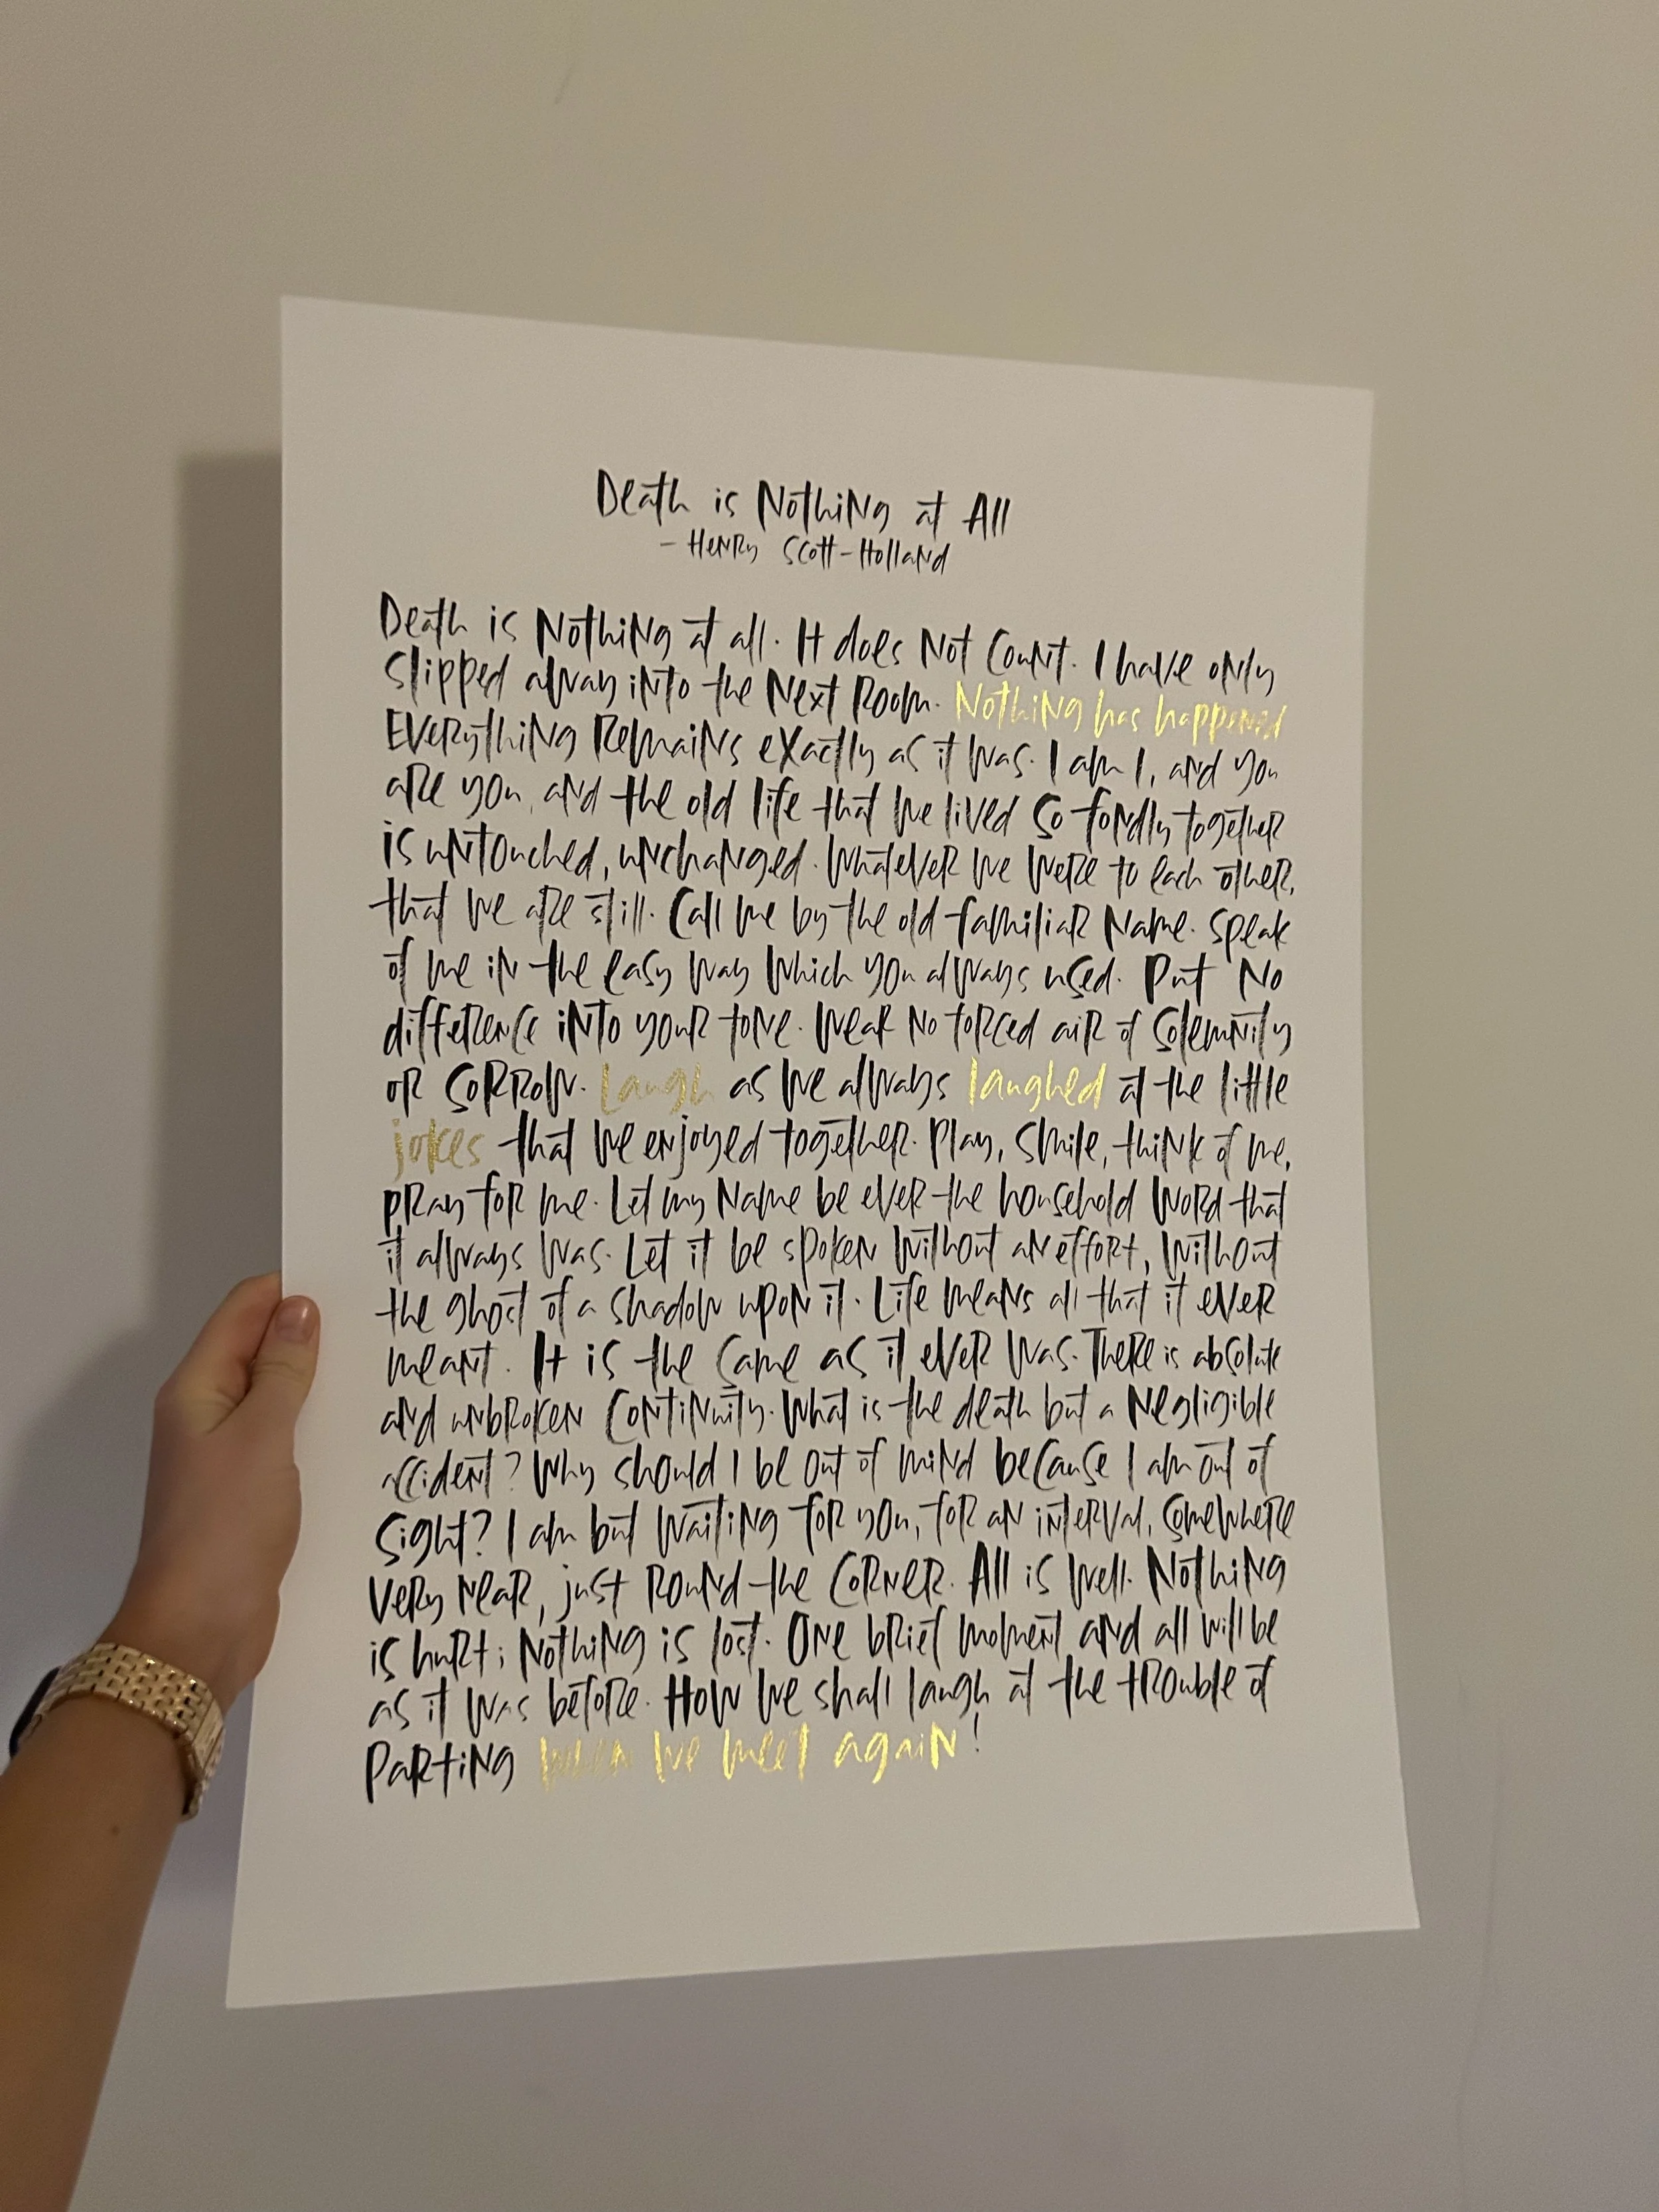 Death is Nothing at All
- Henry Scott-Holland
Death is Nothing at all. It does Not Count. I have only
slipped away into the Next Room. Nothing has happened
Everything Remains exactly as it was. I am I, and you
are you, and the old life that we lived so fondly together
is untouched, unchanged. Whatever we were to each other,
that we are still. Call me by the old familiar Name. Speak
of me in the easy way which you always used. Put No
difference into your tone. Wear No forced air of solemnity
or sorrow. Laugh as we always laughed at the little
jokes that we enjoyed together. Play, smile, think of me,
pray for me. Let my Name be ever the household word that
it always was. Let it be spoken without an effort, without
the ghost of a shadow upon it. Life means all that it ever
meant. It is the same as it ever was. There is absolute
and unbroken continuity. What is the death but a Negligible
accident? Why should I be out of mind because I am out of
sight? I am but waiting for you, for an interval, somewhere
very near, just round the corner. All is well. Nothing
is hurt; Nothing is lost. One brief moment and all will be
as it was before. How we shall laugh at the trouble of
parting when we meet again!